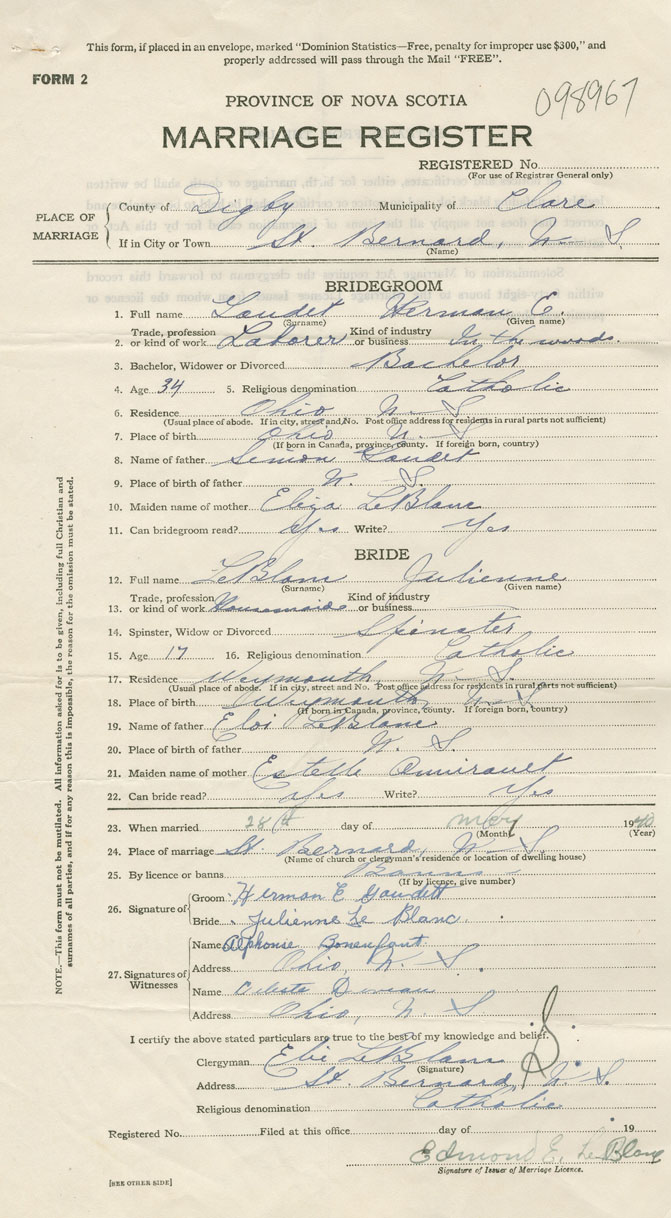 This form, if placed in an envelope, marked "Dominion Statistics—Free, penalty for improper use $300," and
properly addressed will pass through the Mail "FREE".
FORM 2
098967
PROVINCE OF NOVA SCOTIA
MARRIAGE REGISTER
REGISTERED No.
(For use of Registrar General only)
PLACE OF MARRIAGE
County of Digby Municipality of Clare
If in City or Town St. Bernard, N. S.
(Name)
BRIDEGROOM
1. Full name Gaudet Herman E.
(Surname) (Given name)
2. Trade, profession or kind of work Laborer Kind of industry or business In the woods.
3. Bachelor, Widower or Divorced Bachelor
4. Age 34 5. Religious denomination Catholic
6. Residence Ohio N. S.
(Usual place of abode. If in city, street and No. Post office address for residents in rural parts not sufficient)
7. Place of birth Ohio N. S.
(If born in Canada, province, county. If foreign born, country)
8. Name of father Simon Gaudet
9. Place of birth of father N. S.
10. Maiden name of mother Eliza LeBlanc
11. Can bridegroom read? Yes Write? Yes
BRIDE
12. Full name LeBlanc Julienne
(Surname) (Given name)
13. Trade, profession or kind of work Housemaid Kind of industry or business
14. Spinster, Widow or Divorced Spinster
15. Age 17 16. Religious denomination Catholic
17. Residence Weymouth, N. S.
(Usual place of abode. If in city, street and No. Post office address for residents in rural parts not sufficient)
18. Place of birth Weymouth, N. S.
(If born in Canada, province, county. If foreign born, country)
19. Name of father Eloi LeBlanc
20. Place of birth of father N. S.
21. Maiden name of mother Estelle Amirault
22. Can bride read? Yes Write? Yes
23. When married 28th day of May 1940
(Month) (Year)
24. Place of marriage St Bernard, N. S.
(Name of church or clergyman's residence or location of dwelling house)
25. By licence or banns Banns
(If by licence, give number)
26. Signature of
Groom Herman E Gaudet
Bride Julienne Le Blanc.
27. Signatures of Witnesses
Name Alphonse Bonenfant
Address Ohio, N. S.
Name Celeste
Address Ohio, N. S
I certify the above stated particulars are true to the best of my knowledge and belief.
Clergyman Elie LeBlanc
(Signature)
Address St. Bernard, N. S.
Religious denomination Catholic
Registered No. Filed at this office day of 19
Edmond E. Le Blanc
Signature of Issuer of Marriage Licence.
[SEE OTHER SIDE]
NOTE.—This form must not be mutilated. All information asked for is to be given, including full Christian and
surnames of all parties, and if for any reason this is impossible, the reason for the omission must be stated.